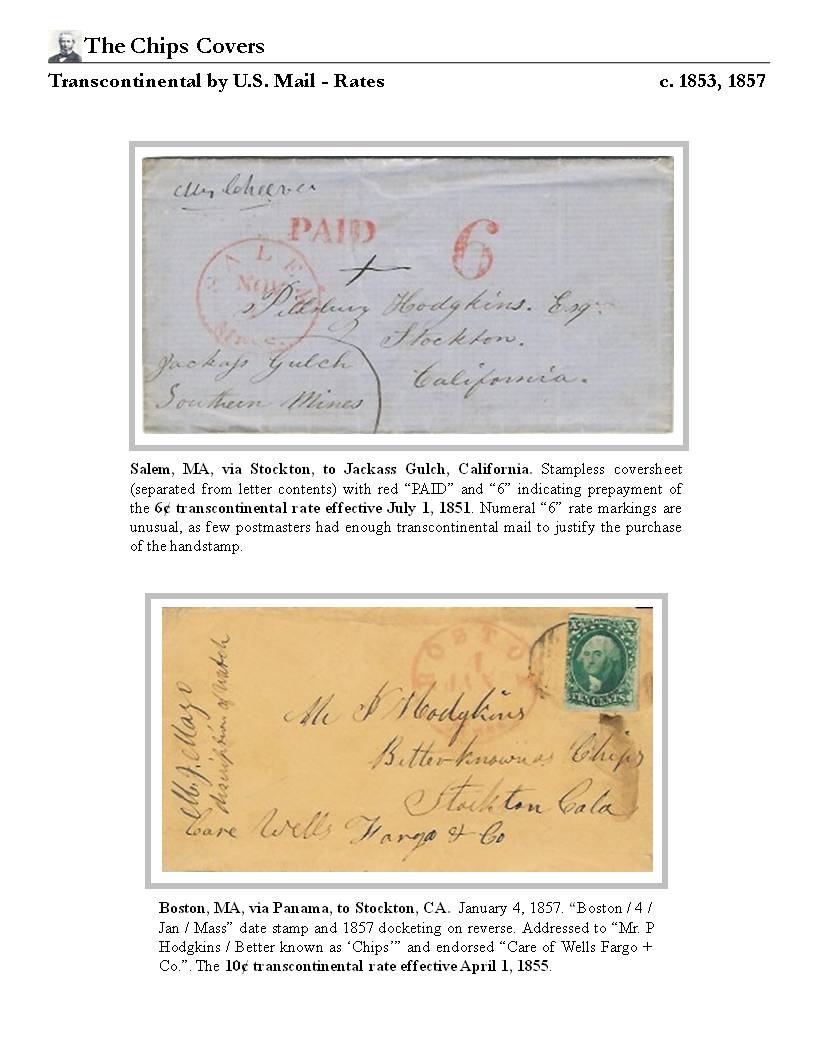 The Chips Covers
Transcontinental by U.S. Mail - Rates c. 1853, 1857
PAID 6
SALEM
NOV
Mass.
Pillsbury Hodgkins. Esqr.
Stockton.
California.
Jackass Gulch
Southern Mines
Salem, MA, via Stockton, to Jackass Gulch, California. Stampless coversheet
(separated from letter contents) with red “PAID” and “6” indicating prepayment of
the 6¢ transcontinental rate effective July 1, 1851. Numeral “6” rate markings are
unusual, as few postmasters had enough transcontinental mail to justify the purchase
of the handstamp.
BOSTON
JAN
TEN CENTS
Mr P Hodgkins
Better known as Chips
Stockton Cala
Care Wells Fargo & Co
M. J. Mayo
discription of watch
Boston, MA, via Panama, to Stockton, CA. January 4, 1857. “Boston / 4 /
Jan / Mass” date stamp and 1857 docketing on reverse. Addressed to “Mr. P
Hodgkins / Better known as ‘Chips’” and endorsed “Care of Wells Fargo +
Co.”. The 10¢ transcontinental rate effective April 1, 1855.